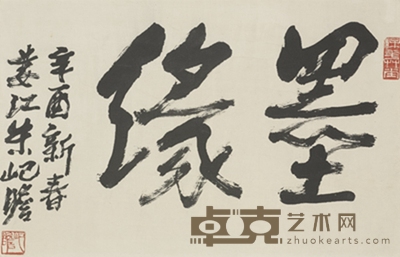 墨缘
辛酉新春
娄江朱屺瞻
卓克艺术网
zhuokearts.com